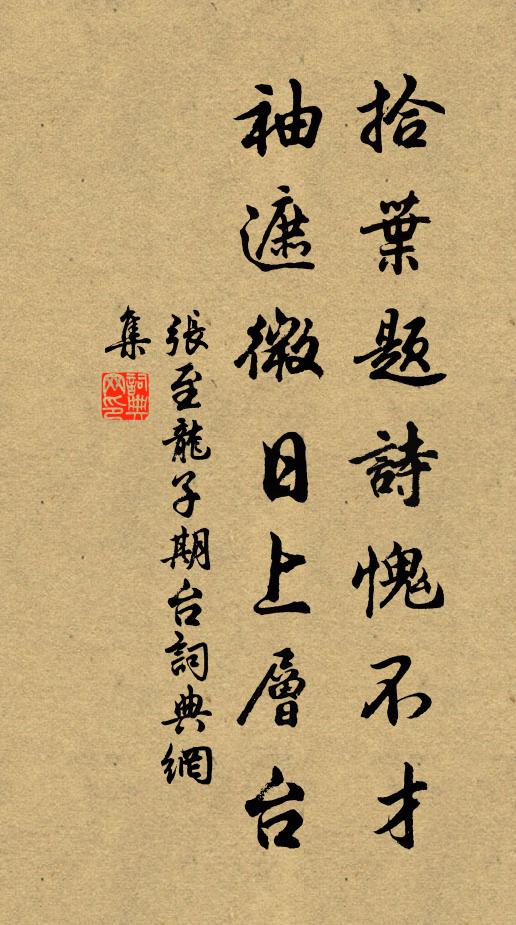 拾葉題詩愧不才
袖遮微日上層台
張至龍子期台詞典網
集
詞典網印